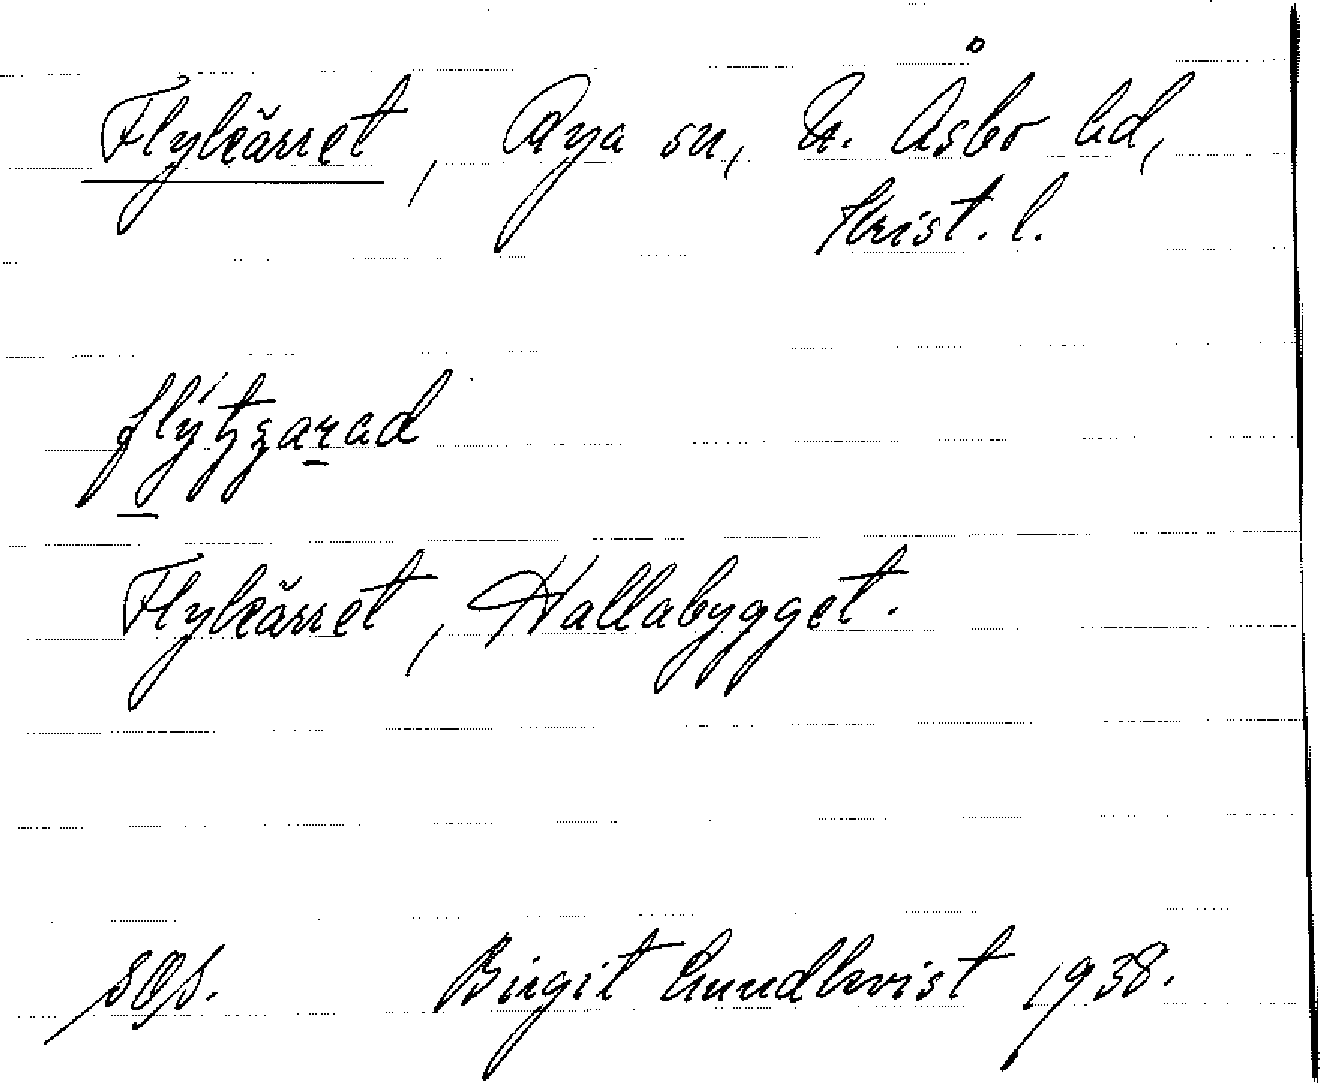 Flykärret, Rya sn, N. Åsbo hd,
Krist. l.
Flykärret, Hallabygget.
Birgit Lundkvist 1938.